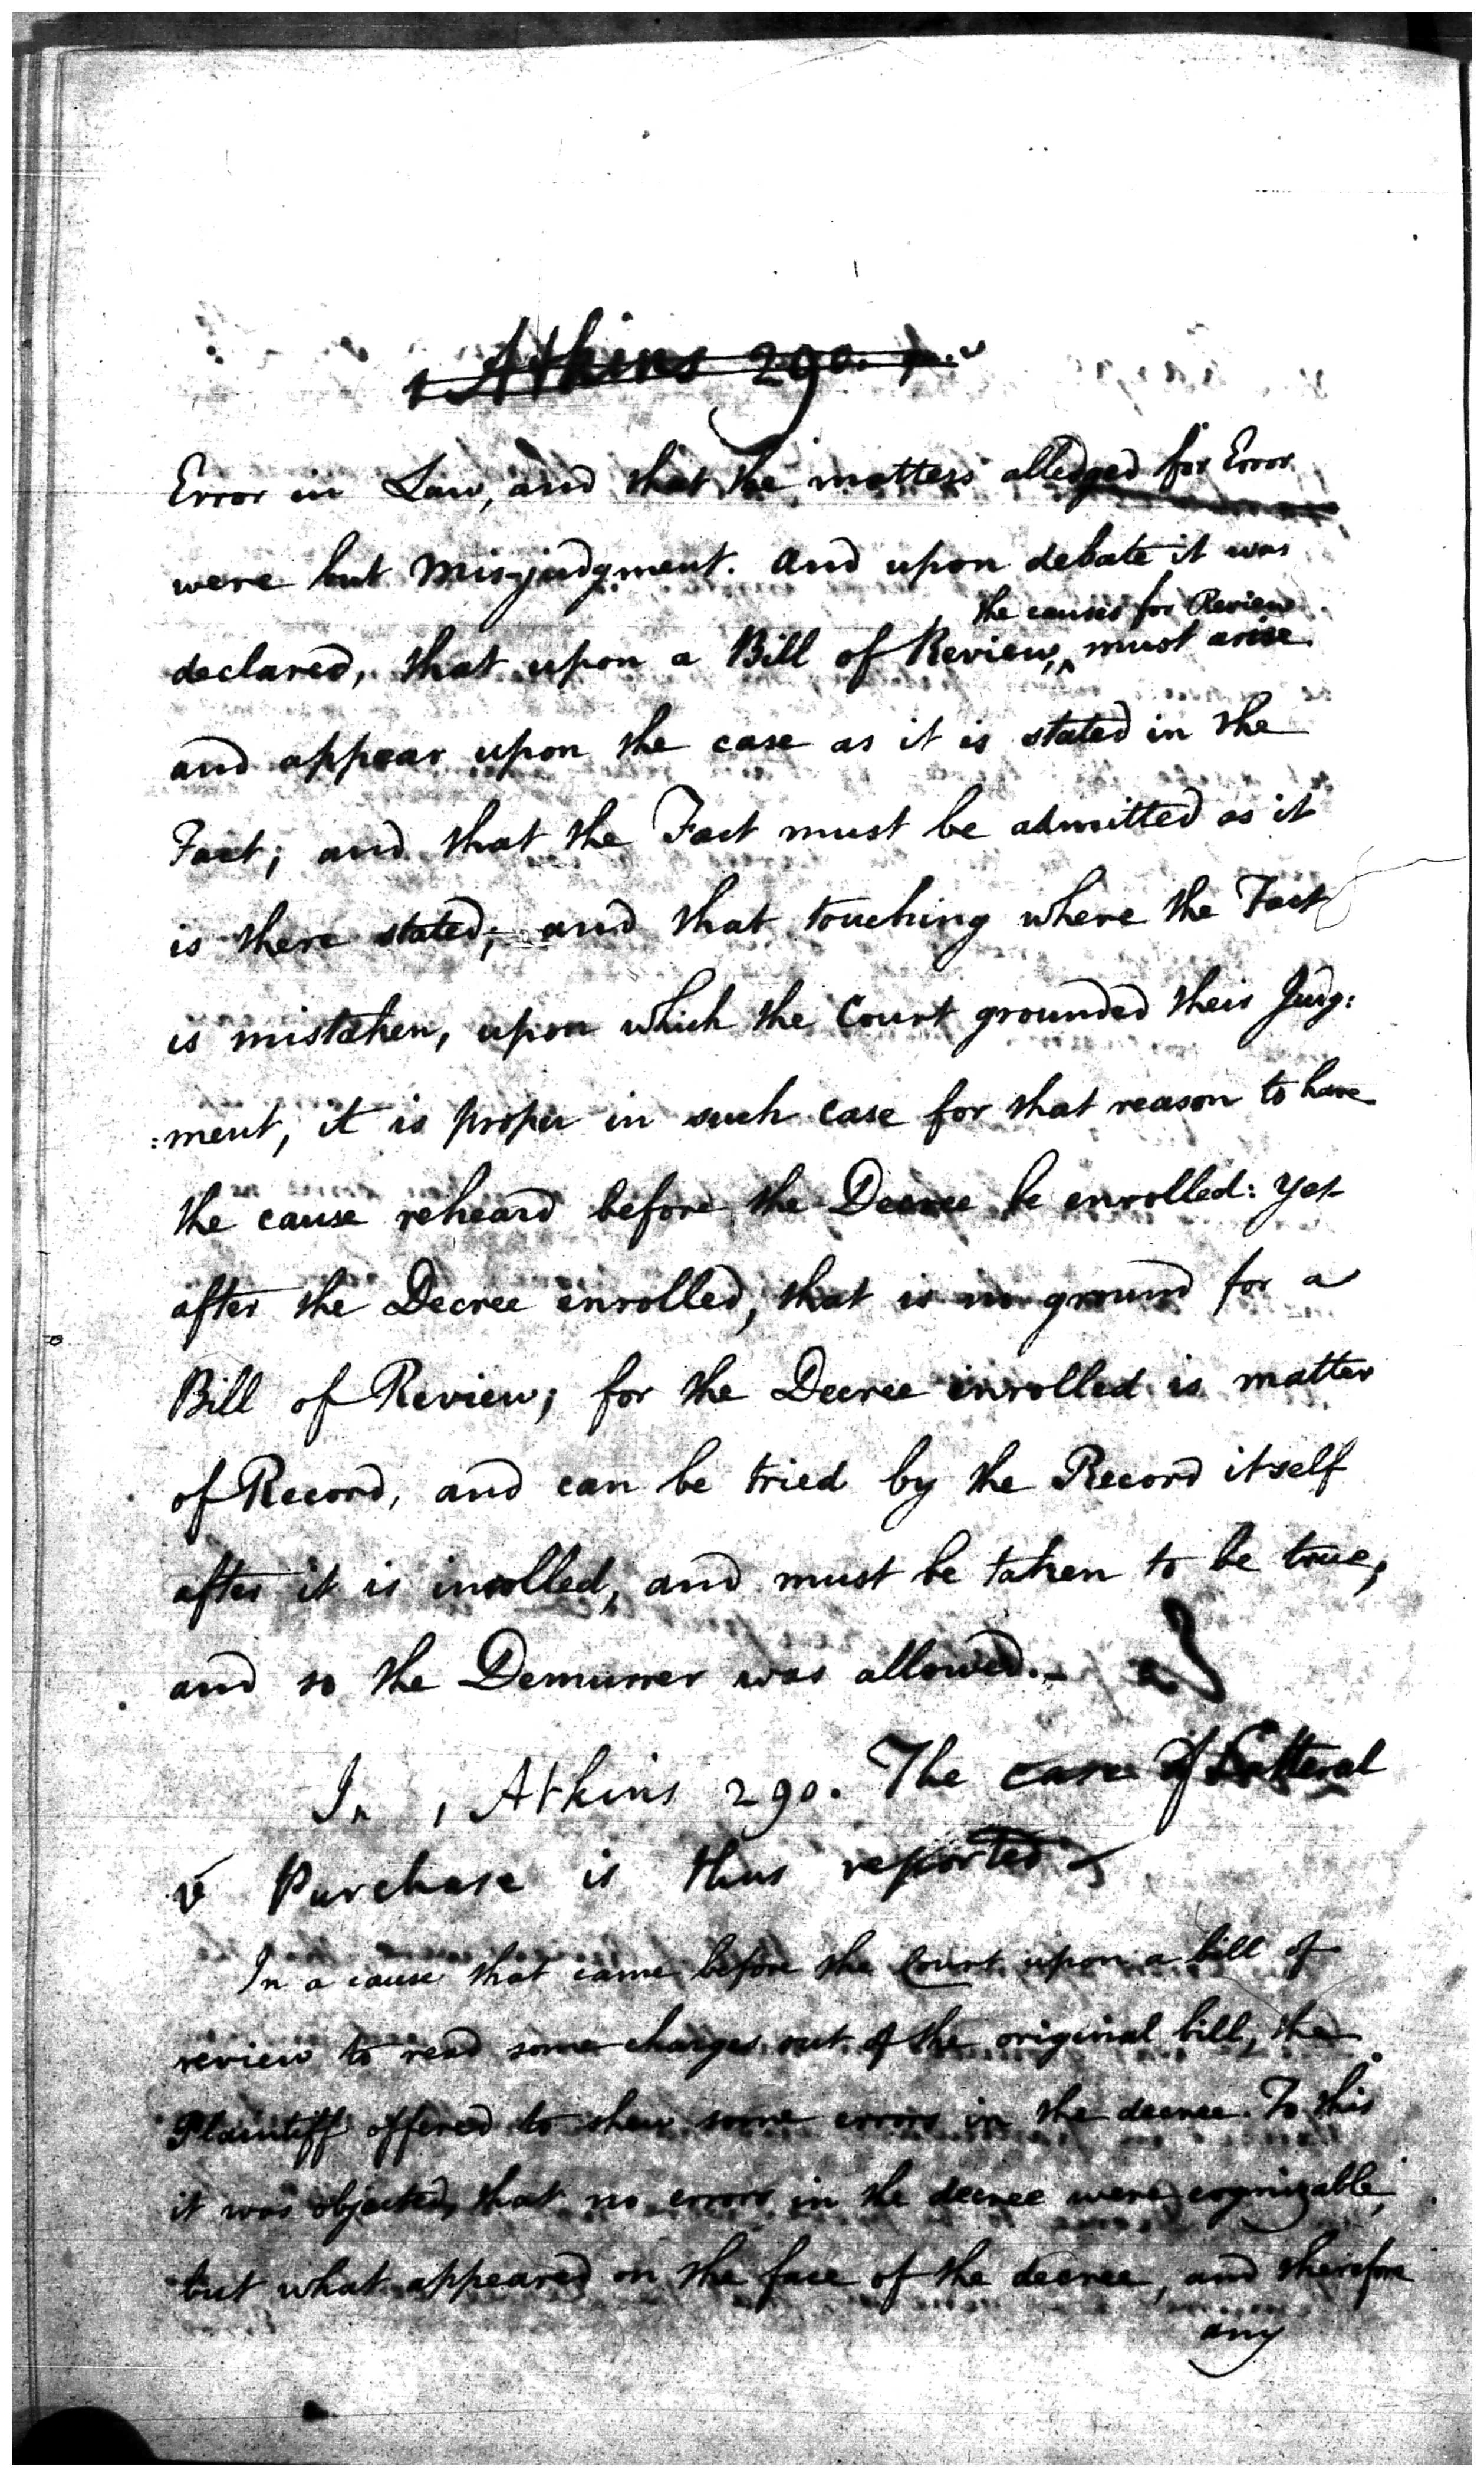 1 Atkins 290. p.
Error in Law, and that the matters alledged for Error
were but Misjudgment. And upon debate it was
the causes for Review
declared, that upon a Bill of Review, ^ must arise
and appear upon the case as it is stated in the
Fact; and that the Fact must be admitted as it
is there stated; and that touching where the Fact
is mistaken, upon which the Court grounded their Judg:
:ment, it is proper in such case for that reason to have
the cause reheard before the Decree be enrolled: yet
after the Decree enrolled, that is no ground for a
Bill of Review; for the Decree inrolled is matter
of Record, and can be tried by the Record itself
after it is inrolled, and must be taken to be true;
and so the Demurrer was allowed.
In 1 Atkins 290. The case of Catteral
v Purchase is thus reported
In a cause that came before the Court upon a bill of
review to read some charges out of the original bill, the
Plaintiff offered to shew some errors in the decree. To this
it was objected, that no errors in the decree were cognizable,
but what appeared on the face of the decree, and therefore
any